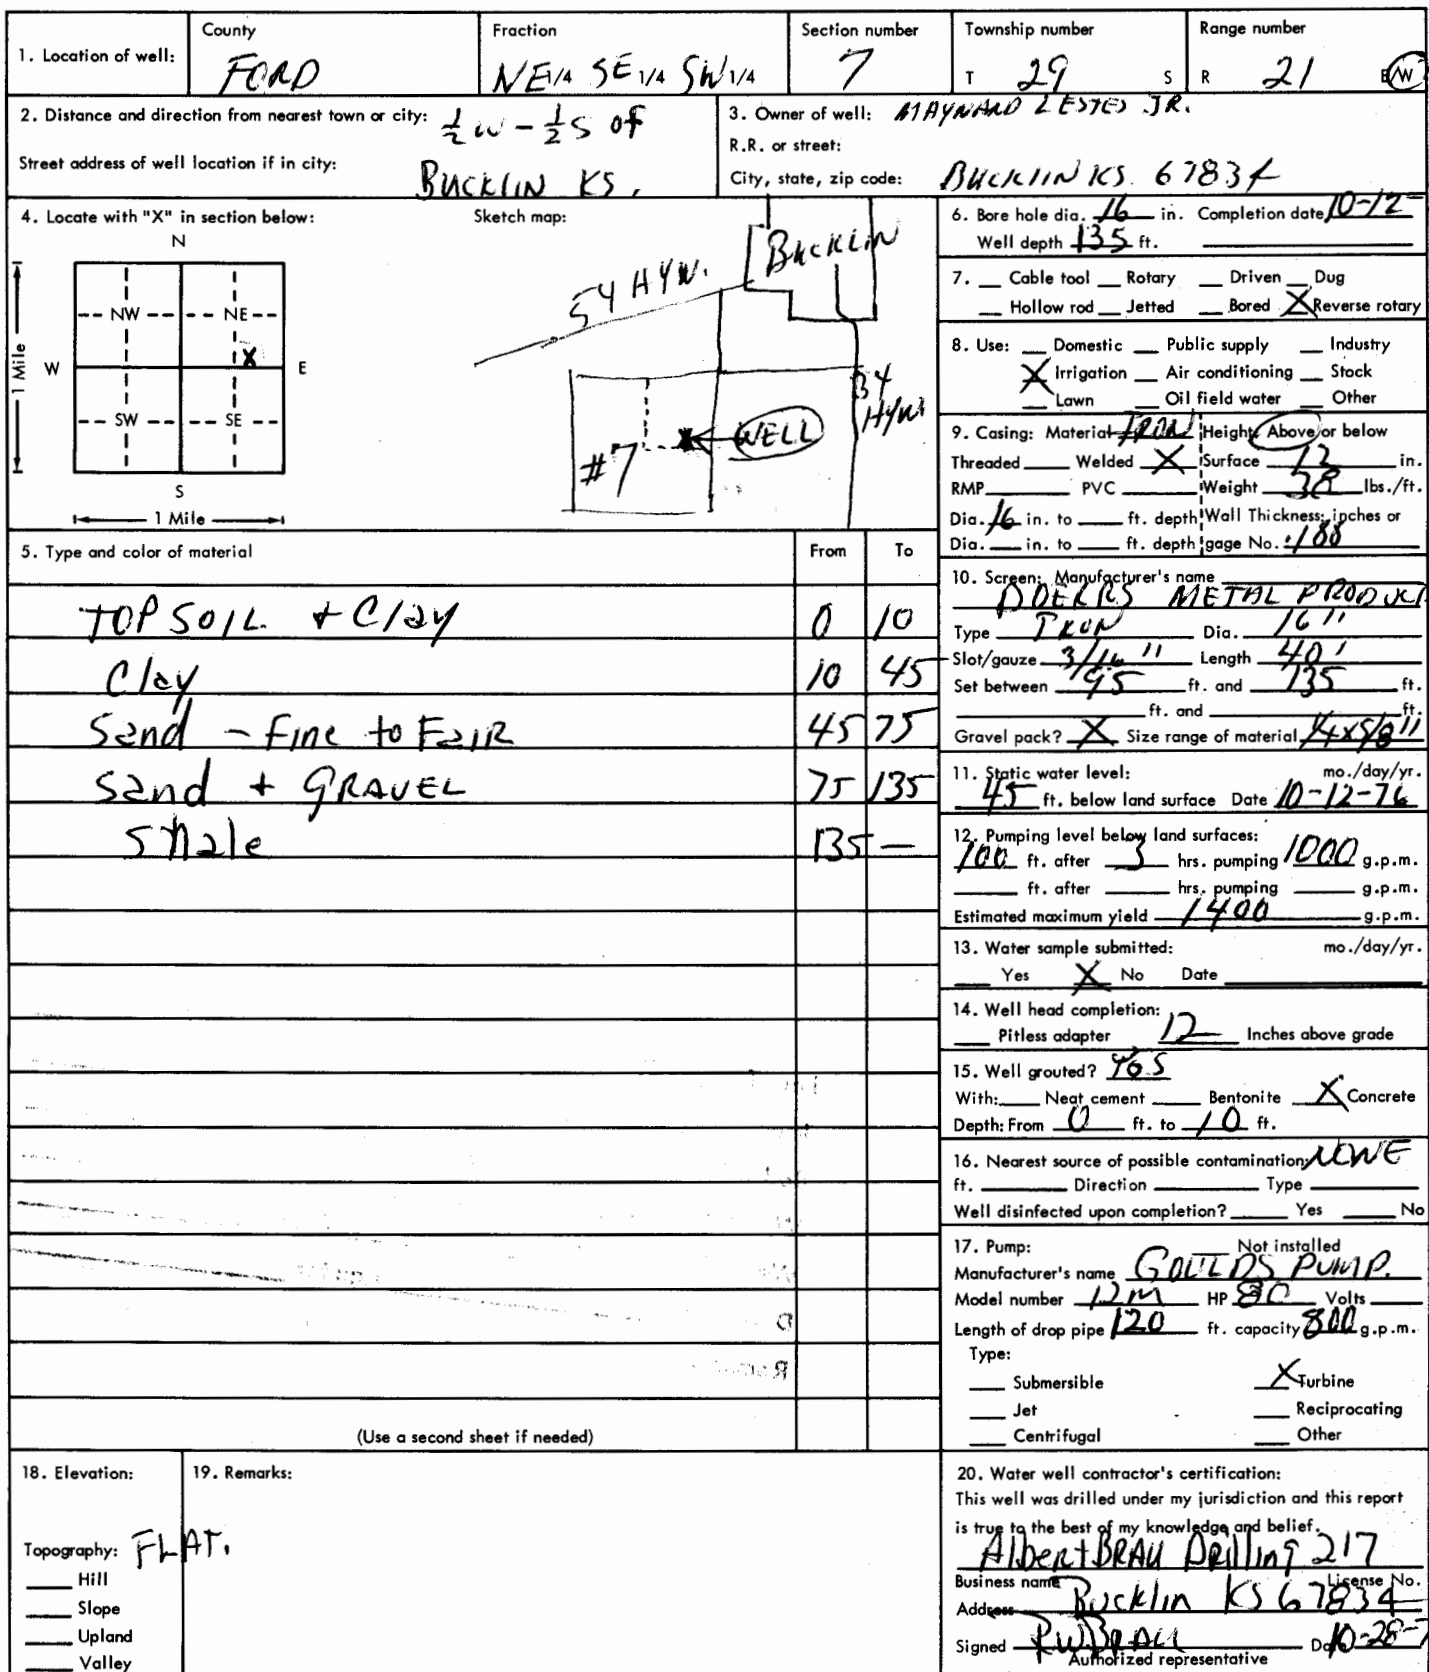 County Fraction Section number Township number Range number
1. Location of well: FORD NE1/4 SE 1/4 SW 1/4 7 T 29 S R 21 E/W
2. Distance and direction from nearest town or city: 1/2 W - 1/2 S of
Street address of well location if in city: BUCKLIN KS.
3. Owner of well: MAYNARD ESTES JR.
R.R. or street:
City, state, zip code: BUCKLIN KS. 67834
4. Locate with "X" in section below: Sketch map:
N
NW NE
1 Mile W X E
SW SE
S
1 Mile
BUCKLIN
54 HYW.
34 HYW
WELL
#7
5. Type and color of material From To
TOP SOIL + Clay 0 10
Clay 10 45
Sand - Fine to FaIR 45 75
Sand + GRAVEL 75 135
Shale 135 —
(Use a second sheet if needed)
6. Bore hole dia. 16 in. Completion date 10-12-
Well depth 135 ft.
7. Cable tool Rotary Driven Dug
Hollow rod Jetted Bored X Reverse rotary
8. Use: Domestic Public supply Industry
X Irrigation Air conditioning Stock
Lawn Oil field water Other
9. Casing: Material IRON Height: Above or below
Threaded Welded X Surface 12 in.
RMP PVC Weight 38 lbs./ft.
Dia. 16 in. to ft. depth Wall Thickness: inches or
Dia. in. to ft. depth gage No. .188
10. Screen: Manufacturer's name
DOERRS METAL PRODUCT
Type IRON Dia. 16"
Slot/gauze 3/16" Length 40'
Set between 95 ft. and 135 ft.
ft. and ft.
Gravel pack? X Size range of material 1/4 x 5/8"
11. Static water level: mo./day/yr.
45 ft. below land surface Date 10-12-76
12. Pumping level below land surfaces:
100 ft. after 3 hrs. pumping 1000 g.p.m.
ft. after hrs. pumping g.p.m.
Estimated maximum yield 1400 g.p.m.
13. Water sample submitted: mo./day/yr.
Yes X No Date
14. Well head completion:
Pitless adapter 12 Inches above grade
15. Well grouted? YES
With: Neat cement Bentonite X Concrete
Depth: From 0 ft. to 10 ft.
16. Nearest source of possible contamination: NONE
ft. Direction Type
Well disinfected upon completion? Yes No
17. Pump: Not installed
Manufacturer's name GOULDS PUMP.
Model number 12M HP 80 Volts
Length of drop pipe 120 ft. capacity 800 g.p.m.
Type:
Submersible X Turbine
Jet Reciprocating
Centrifugal Other
18. Elevation: 19. Remarks:
Topography: FLAT.
Hill
Slope
Upland
Valley
20. Water well contractor's certification:
This well was drilled under my jurisdiction and this report
is true to the best of my knowledge and belief.
Albert BRAU Drilling 217
Business name License No.
Address Bucklin KS 67834
Signed RW BRAU Date 10-28-7
Authorized representative